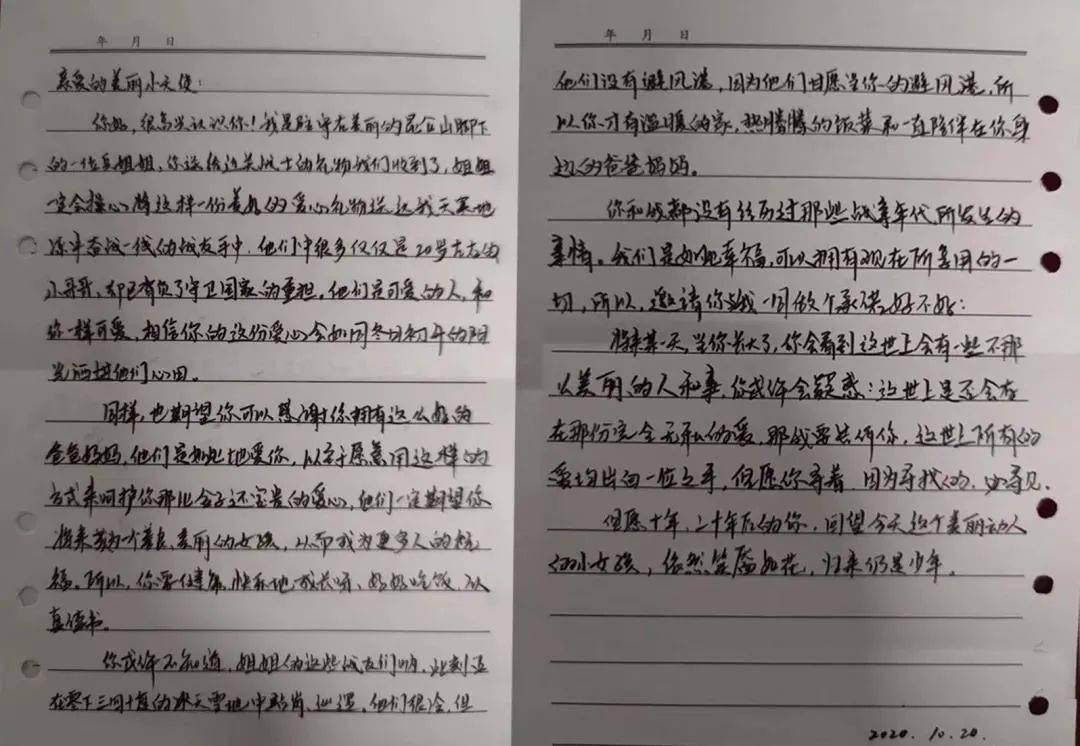 年 月 日
亲爱的美丽小天使：
你好，很高兴认识你！我是驻守在美丽的昆仑山脚下
的一位兵姐姐，你送给边关战士的礼物我们收到了，姐姐
一定会操心将这样一份美好的爱心礼物送达我天寒地
冻斗奋战一线的战友手中，他们中很多仅仅是20岁左右的
小哥哥，却已肩负了守卫国家的重担。他们是可爱的人，和
你一样可爱，相信你的这份爱心会如同冬日初升的阳
光洒进他们心田。
同样，也期望你可以感谢你拥有这么好的
爸爸妈妈，他们是如此地爱你，以至于愿意用这样的
方式来呵护你那比金子还宝贵的爱心，他们一定期望你
将来努力个善良、美丽的女孩，从而成为更多人的
所以，你要健康、快乐地成长呀，好好吃饭，认
真读书。
你或许不知道，姐姐的这些战友们呐，此刻正
在零下三四十度的冰天雪地中站岗、巡逻。他们很冷，但
年 月 日
他们没有避风港，因为他们甘愿当你的避风港，所
以你才有温暖的家，热腾腾的饭菜和一直陪伴在你身
边的爸爸妈妈。
你和我都没有经历过那些战争年代所发生的
事情。我们是如此幸福，可以拥有现在所享用的一
切，所以，邀请你与我一同做个承诺好不好：
将来某一天，当你长大了，你会看到这世上会有一些不那
么美丽的人和事，你或许会疑惑：这世上是否会存
在那份完全无私的爱，那我要告诉你，这世上所有的
爱均出自一位之手，但愿你寻着，因为寻找的，必寻见。
但愿十年、二十年后的你，回望今天这个美丽动人
的小女孩，依然笑靥如花，归来仍是少年。
2020.10.20.